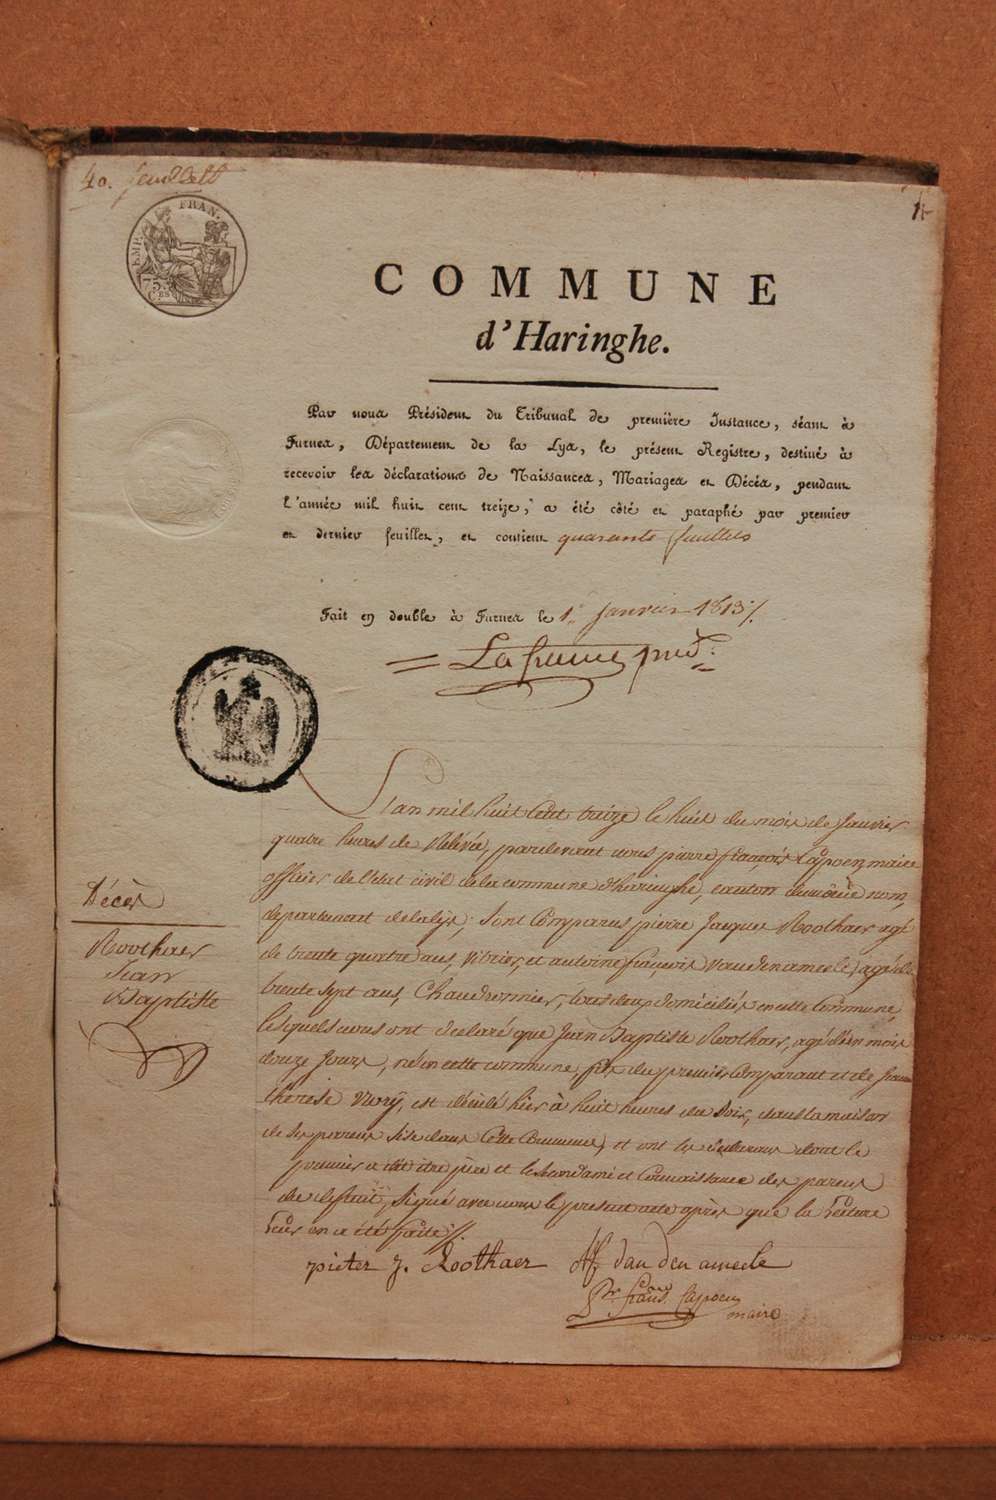 40. feuillets
1
EMP. FRAN.
75
COMMUNE
d'Haringhe.
Par nous Président du Tribunal de première Instance, séant à
Furnes, Département de la Lys, le présent Registre, destiné à
recevoir les déclarations de Naissances, Mariages et Décès, pendant
l'année mil huit cent treize, a été côté et paraphé par premier
et dernier feuillet, et contient quarante feuillets
Fait en double à Furnes le 1er janvier 1813
pred.
L'an mil huit cent treize le huit du mois de Janvier
quatre heures de Relévée, pardevant nous pierre françois Cappoen maire
officier de l'etat civil de la commune d'haringhe, canton du même nom,
departement de la lys; sont Comparus pierre Jacques Roothaer agé
de trente quatre ans, vitrier, et antoine françois vanden ameele, agé de
trente sept ans, Chaudronnier, tous deux domiciliés en cette Commune,
lesquels nous ont declaré que Jean Baptiste Roothaer, agé d'un mois
douze Jours, né en cette commune, fils du premier Comparant et de
therese est décédé hier à huit heures du soir, dans la maison
de ses parens sise dans Cette Commune, et ont les declarans dont le
premier a dit être père et le second ami et Connaissance des parens
du deffunt, signé avec nous le present acte après que la Lecture
Leur en a été faite
Décès
Roothaer
Jean
Baptiste
pieter j. Roothaer
AF. van den ameele
Pre. frans. Cappoen
maire